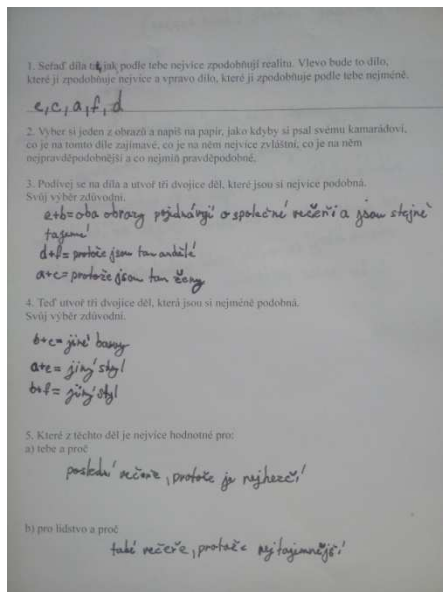 1. Seřaď díla tak, jak podle tebe nejvíce zpodobňují realitu. Vlevo bude to dílo,
které ji zpodobňuje nejvíce a vpravo dílo, které ji zpodobňuje podle tebe nejméně.
e,c,a,f,d
2. Vyber si jeden z obrazů a napiš na papír, jako kdyby si psal svému kamarádovi,
co je na tomto díle zajímavé, co je na něm nejvíce zvláštní, co je na něm
nejpravděpodobnější a co nejmíň pravděpodobné.
3. Podívej se na díla a utvoř tři dvojice děl, které jsou si nejvíce podobná.
Svůj výběr zdůvodni.
e+b= oba obrazy pojednávají o společné večeři a jsou stejně
tajemé
d+f= protože jsou tam andělé
a+c= protože jsou tam ženy
4. Teď utvoř tři dvojice děl, která jsou si nejméně podobná.
Svůj výběr zdůvodni.
b+c= jiné barvy
a+e= jiný styl
b+f= jiný styl
5. Které z těchto děl je nejvíce hodnotné pro:
a) tebe a proč
poslední večeře, protože je nejhezčí
b) pro lidstvo a proč
také večeře, protože nejtajemnější